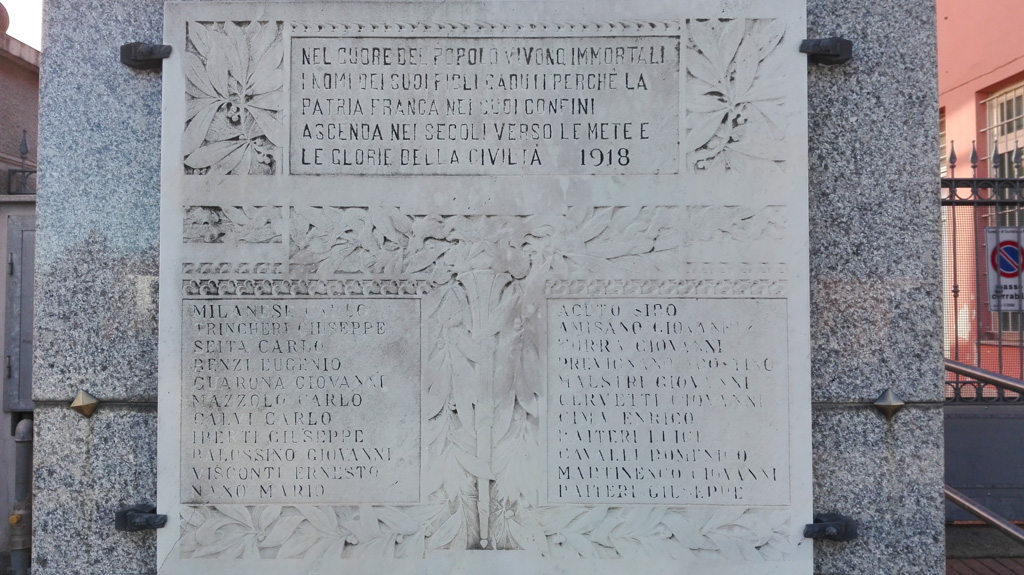 NEL CUORE DEL POPOLO VIVONO IMMORTALI
I NOMI DEI SUOI FIGLI CADUTI PERCHÈ LA
PATRIA FRANCA NEI SUOI CONFINI
ASCENDA NEI SECOLI VERSO LE METE E
LE GLORIE DELLA CIVILTÀ 1918
MILANESE CARLO
TRINCHERI GIUSEPPE
SEITA CARLO
BENZI EUGENIO
GUARONA GIOVANNI
MAZZOLO CARLO
CALVI CARLO
IPERTI GIUSEPPE
BALOSSINO GIOVANNI
VISCONTI ERNESTO
NANO MARIO
ACUTO SIRO
AMISANO GIOVANNI
TORRA GIOVANNI
PREVIGNANO AGOSTINO
MAESTRI GIOVANNI
CERVETTI GIOVANNI
CIMA ENRICO
PAITERI LUIGI
CAVALLI DOMENICO
MARTINENCO GIOVANNI
PAITERI GIUSEPPE